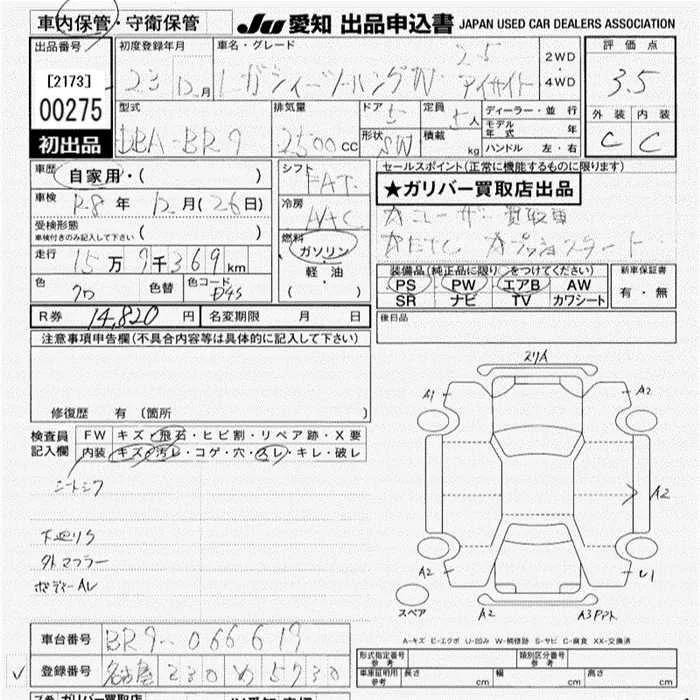 車内保管・守衛保管
JU 愛知 出品申込書 JAPAN USED CAR DEALERS ASSOCIATION
出品番号 初度登録年月 車名・グレード 評価点
[2173] 23 12月 レガシィーツーリングW 2.5 アイサイト 2WD・4WD 3.5
00275
型式 排気量 ドア 5 定員 5人 ディーラー・並行 外装 内装
初出品 DBA-BR9 2500cc 形状 SW 積載 kg モデル年式 年 C C
ハンドル 左・右
車歴 自家用・( ) シフト FAT セールスポイント(正常に機能するものに限ります)
★ガリバー買取店出品
車検 R8年 12月(26日) 冷房 AAC
☆ユーザー買取車
受検形態 車検付きのみ記入して下さい ( ) 燃料 ガソリン・軽油 ( )
走行 15万9千369km
装備品(純正品に限り○をつけてください) 新車保証書
PS PW エアB AW 有・無
SR ナビ TV カワシート
色 クロ 色替 色コード D4S
後日品
R券 14,820円 名変期限 月 日
注意事項申告欄(不具合内容等は具体的に記入して下さい)
修復歴 有 (箇所 )
検査員記入欄 FW キズ・飛石・ヒビ割・リペア跡・X要
内装 キズ・汚レ・コゲ・穴・スレ・キレ・破レ
シートシワ
下廻りサ
外マフラー
ボディーAL
スリA
A1 A2
A2
A2 U1
スペア A2 A3アト
A-キズ E-エクボ U-凹み W-補修跡 S-サビ C-腐食 XX-交換済
車台番号 BR9-066617
形式指定番号 参考 類別区分番号 参考
✓ 登録番号 名古屋 330 め 5730
車庫証明用 参考 長さ cm 幅 cm 高さ cm
ガリバー買取店